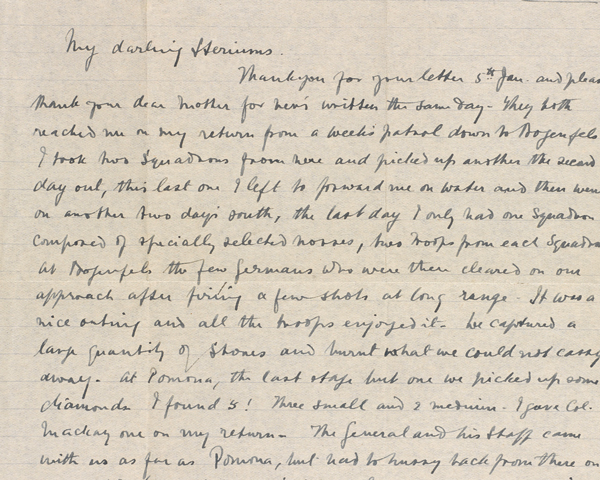 My darling
Thank you for your letter 5th Jan. and pleas
thank your dear mother for her's written the same day - They both
reached me on my return from a week's patrol down to Bogenfels
I took two Squadrons from here and picked up another the second
day out, this last one I left to forward me on water and then went
on another two days south, the last day I only had one Squadron
composed of specially selected horses, two troops from each Squadro
At Bogenfels the few Germans who were there cleared on our
approach after firing a few shots at long range. It was a
nice outing and all the troops enjoyed it. We captured a
large quantity of Stores and burnt what we could not carry
away. At Pomona, the last stage but one we picked up some
diamonds I found 5! Three small and 2 medium. I gave Col.
Mackay one on my return. The General and his Staff came
with us as far as Pomona, but had to hurry back from there on